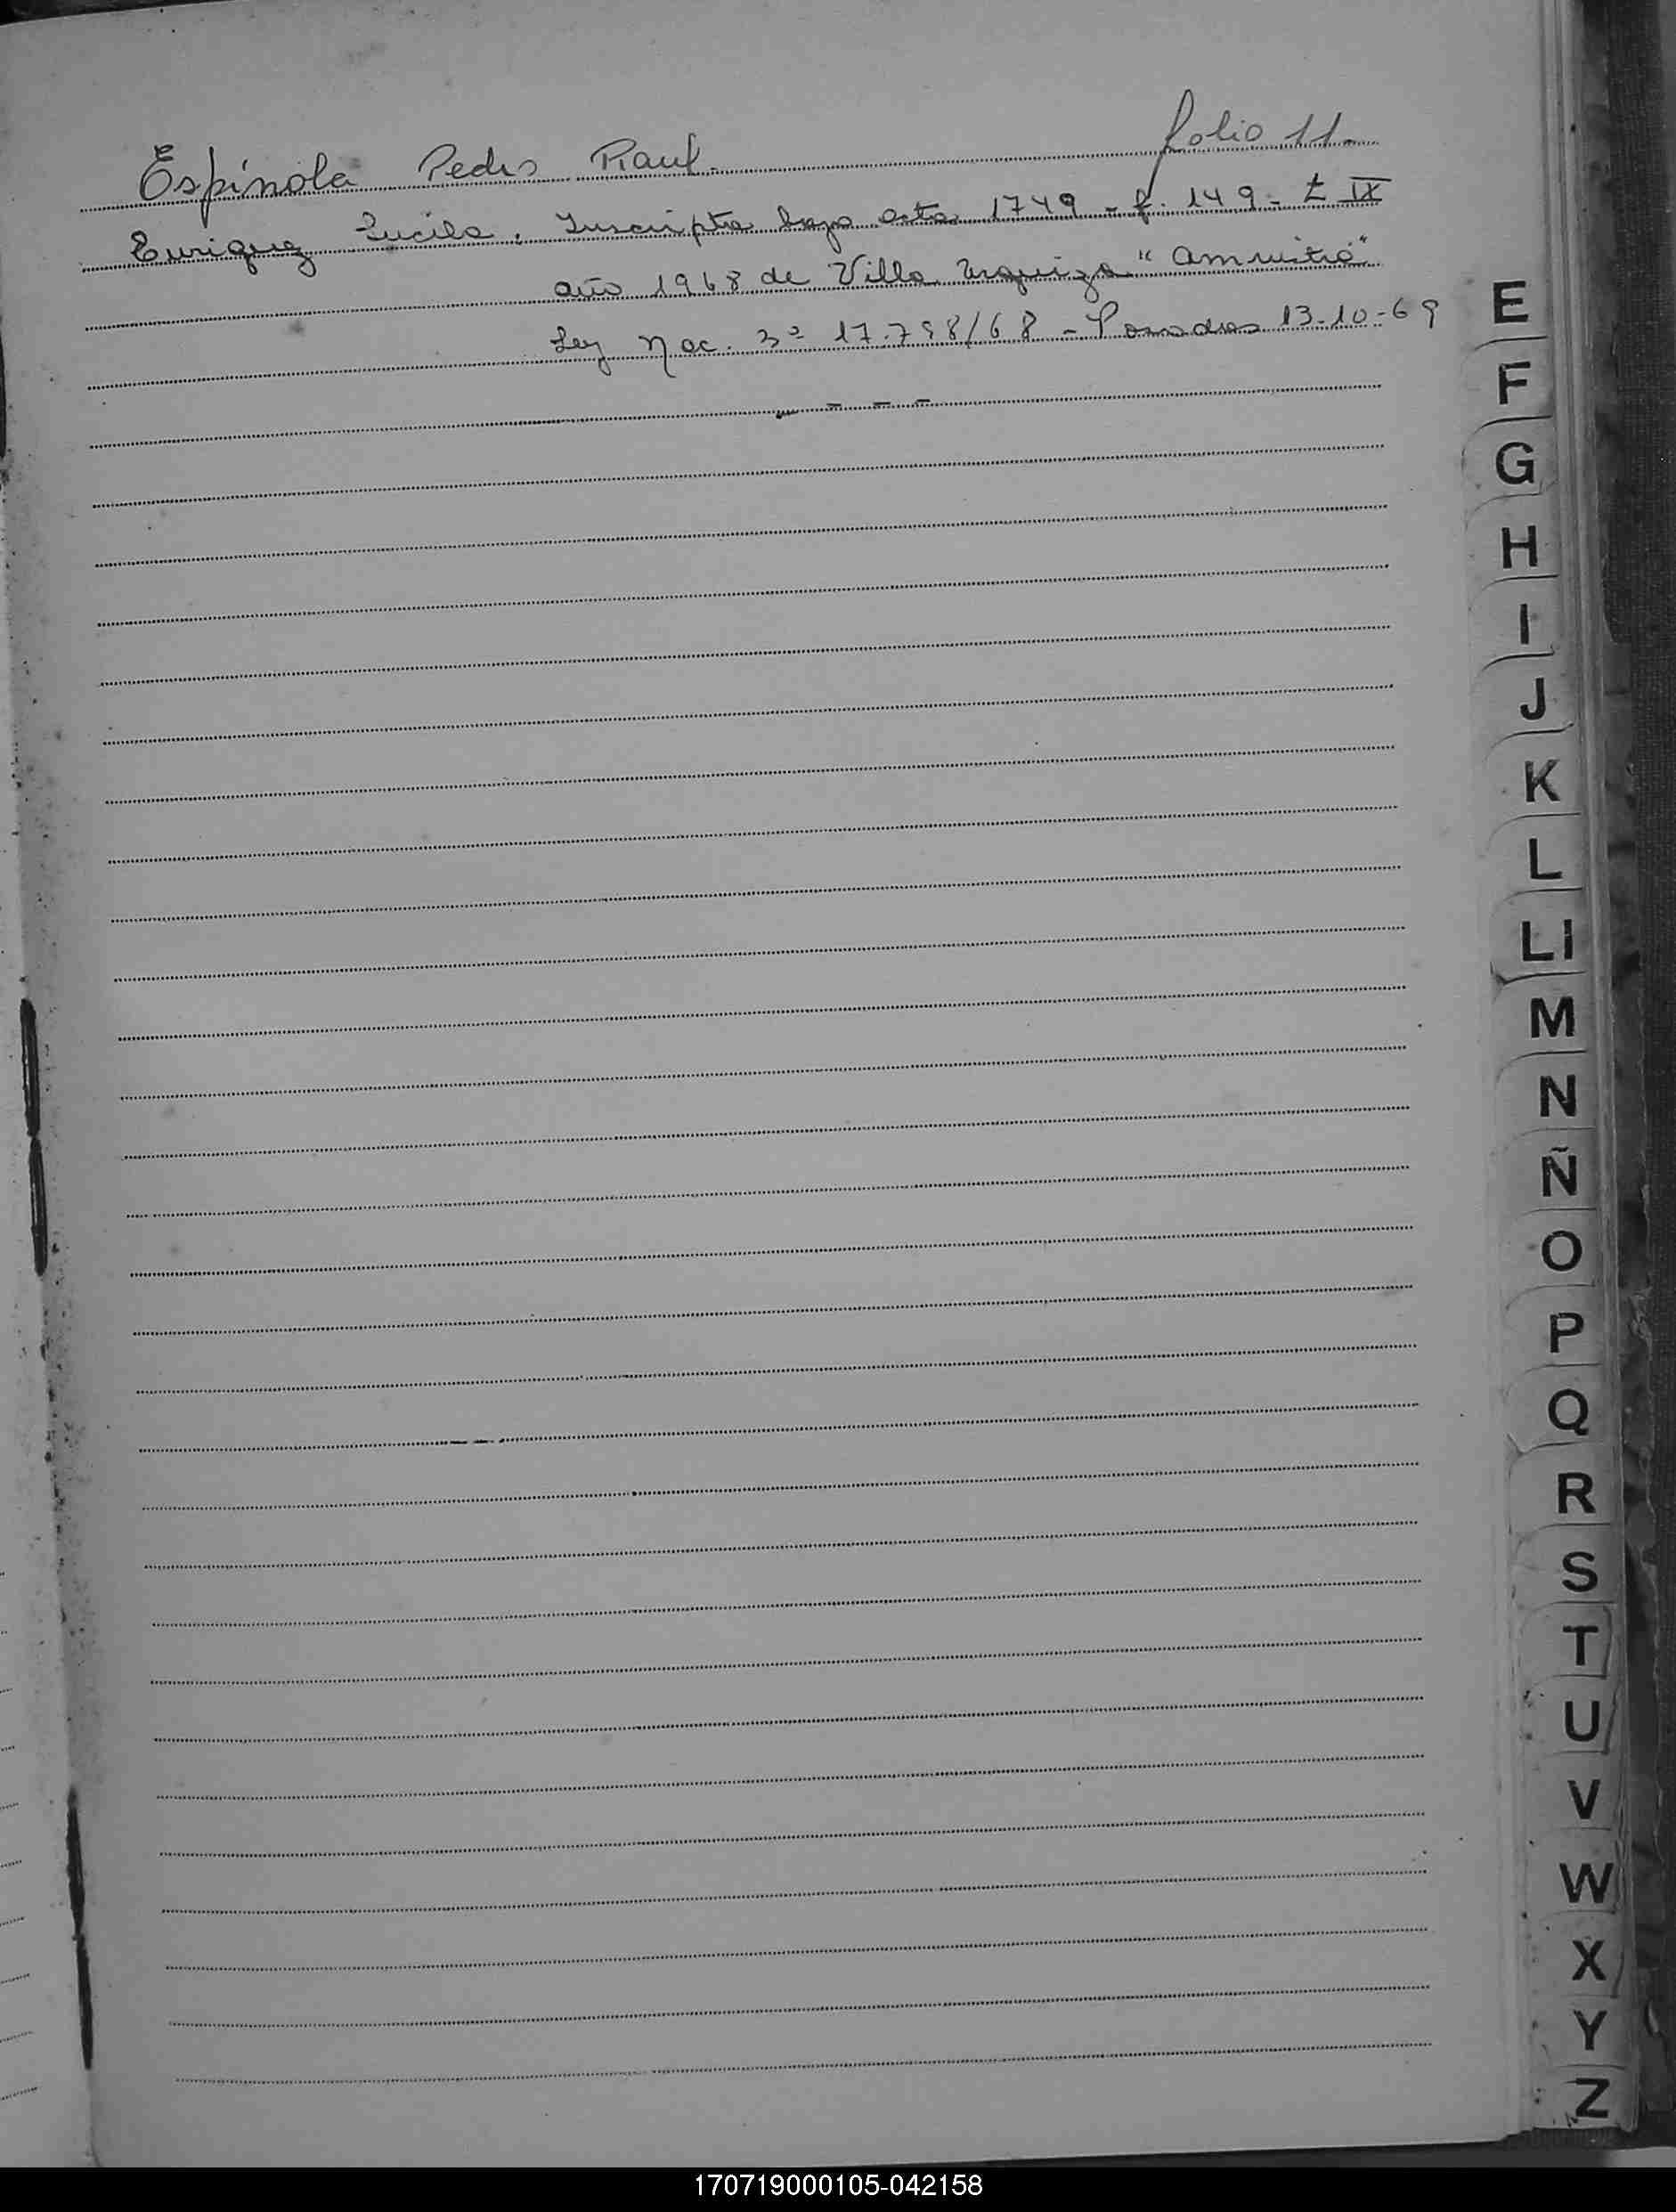 Espínola Pedro Raul. folio 11
Enriquez Lucila. Inscripta bajo acta 1749 - f. 149 - t IX
año 1968 de Villa Urquiza "Amnistia"
Ley Nac. 17.798/68 - Posadas 13-10-69
E
F
G
H
I
J
K
L
Ll
M
N
Ñ
O
P
Q
R
S
T
U
V
W
X
Y
Z
170719000105-042158